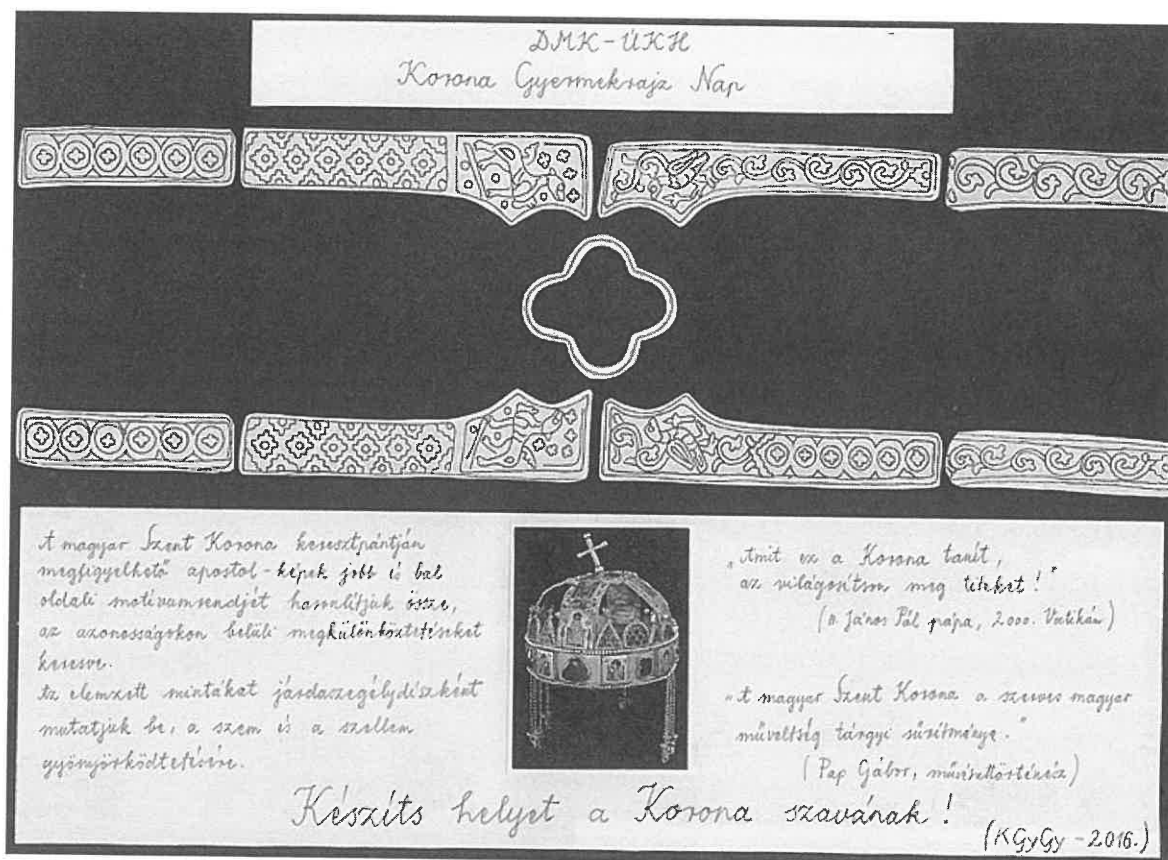 DMK-ÚKH
Korona Gyermekrajz Nap
A magyar Szent Korona keresztpántján
megfigyelhető apostol-képek jobb és bal
oldali motívumrendjét hasonlítjuk össze,
az azonosságokon belüli megkülönböztetéseket
keresve.
Az elemzett mintákat járdaszegélydíszként
mutatjuk be, a szem és a szellem
gyönyörködtetésére.
„Amit ez a Korona tanít,
az világosítson meg titeket!"
(II. János Pál pápa, 2000. Vatikán)
„A magyar Szent Korona a szerves magyar
műveltség tárgyi sűrítménye."
(Pap Gábor, művészettörténész)
Készíts helyet a Korona szavának!
(KGyGy-2016.)